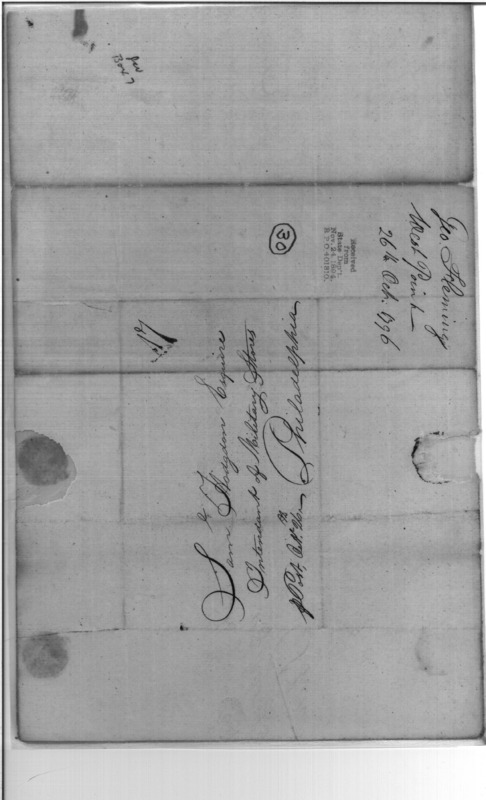 Geo Fleming
West Point
26th Oct. 1796
Received
From
State Dep't.
Nov. 24, 1894,
R. & P. O. 401810.
30
Sam'l Hodgdon Esquire
Intendant of Military Stores
Philadelphia
Box 7